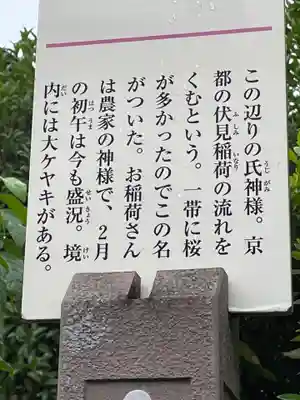 この辺りの氏神様。京
都の伏見稲荷の流れを
くむという。一帯に桜
が多かったのでこの名
がついた。お稲荷さん
は農家の神様で、2月
の初午は今も盛況。境
内には大ケヤキがある。